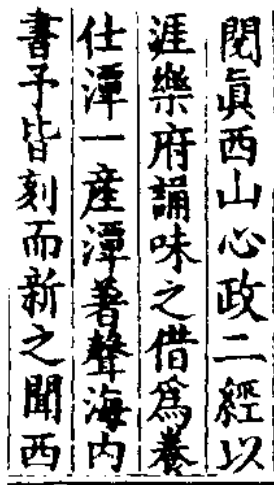 閱眞西山心政二經以
涯樂府誦味之借爲養
仕潭一産潭著聲海内
書予皆刻而新之聞西